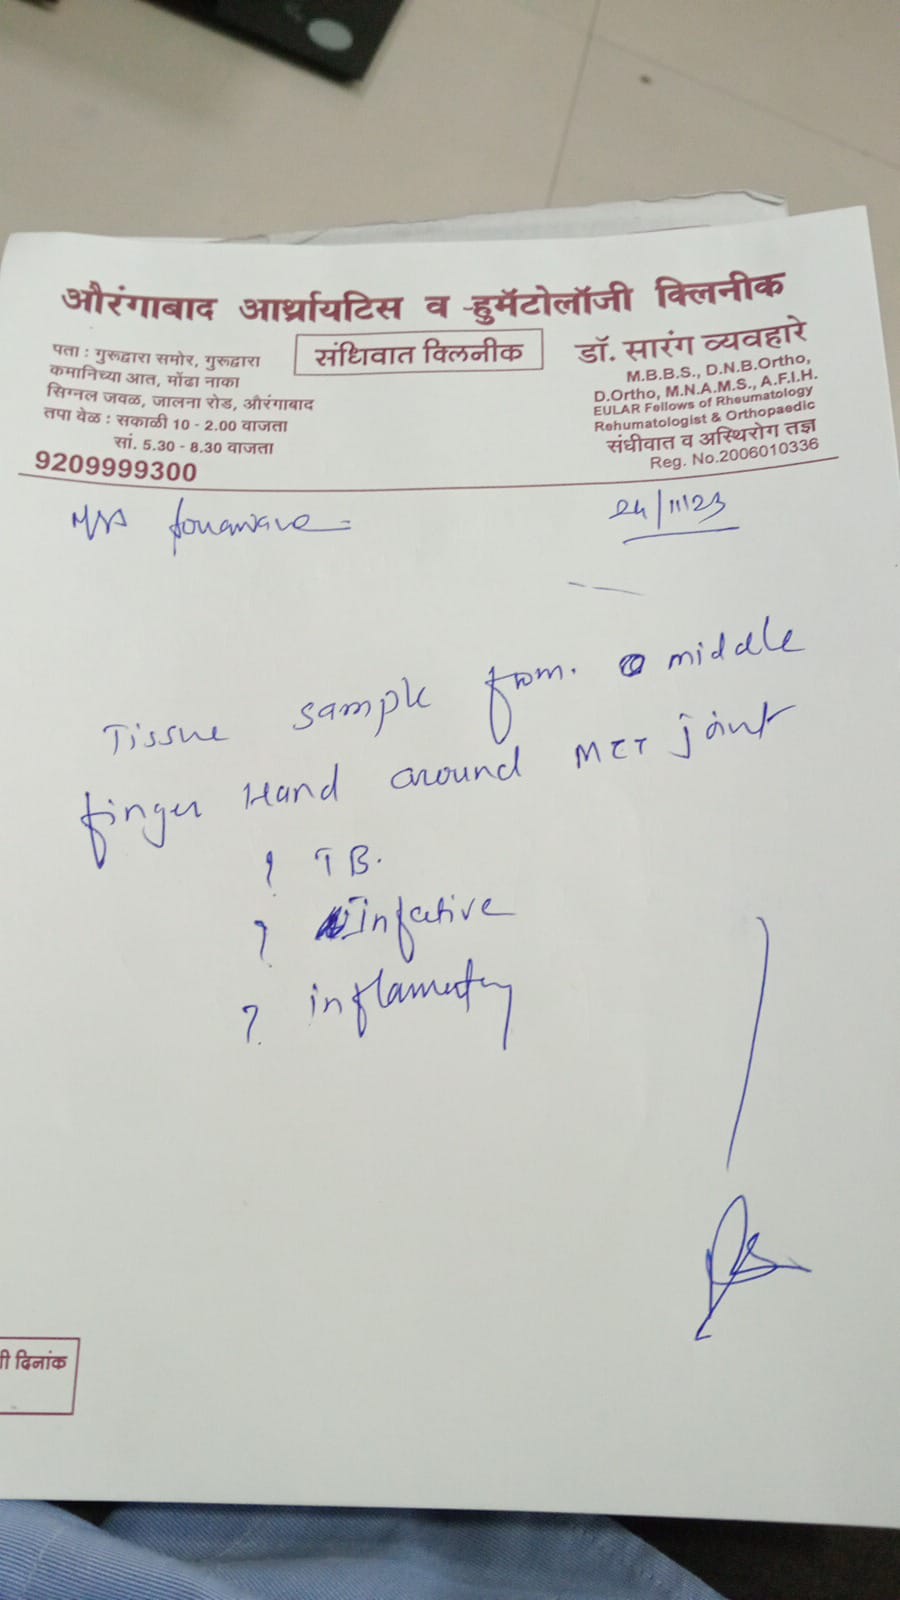 औरंगाबाद आर्थ्रायटिस व -हुमॅटोलॉजी क्लिनीक
संधिवात क्लिनीक
पता : गुरूद्वारा समोर, गुरूद्वारा
कमानिच्या आत, मोंढा नाका
सिग्नल जवळ, जालना रोड, औरंगाबाद
तपा वेळ : सकाळी 10 - 2.00 वाजता
सां. 5.30 - 8.30 वाजता
9209999300
डॉ. सारंग व्यवहारे
M.B.B.S., D.N.B.Ortho,
D.Ortho, M.N.A.M.S., A.F.I.H.
EULAR Fellows of Rheumatology
Rehumatologist & Orthopaedic
संधीवात व अस्थिरोग तज्ञ
Reg. No.2006010336
24/11/23
Tissue sample from. middle
finger Hand around joint
? TB.
? infective
? inflamentry
दिनांक